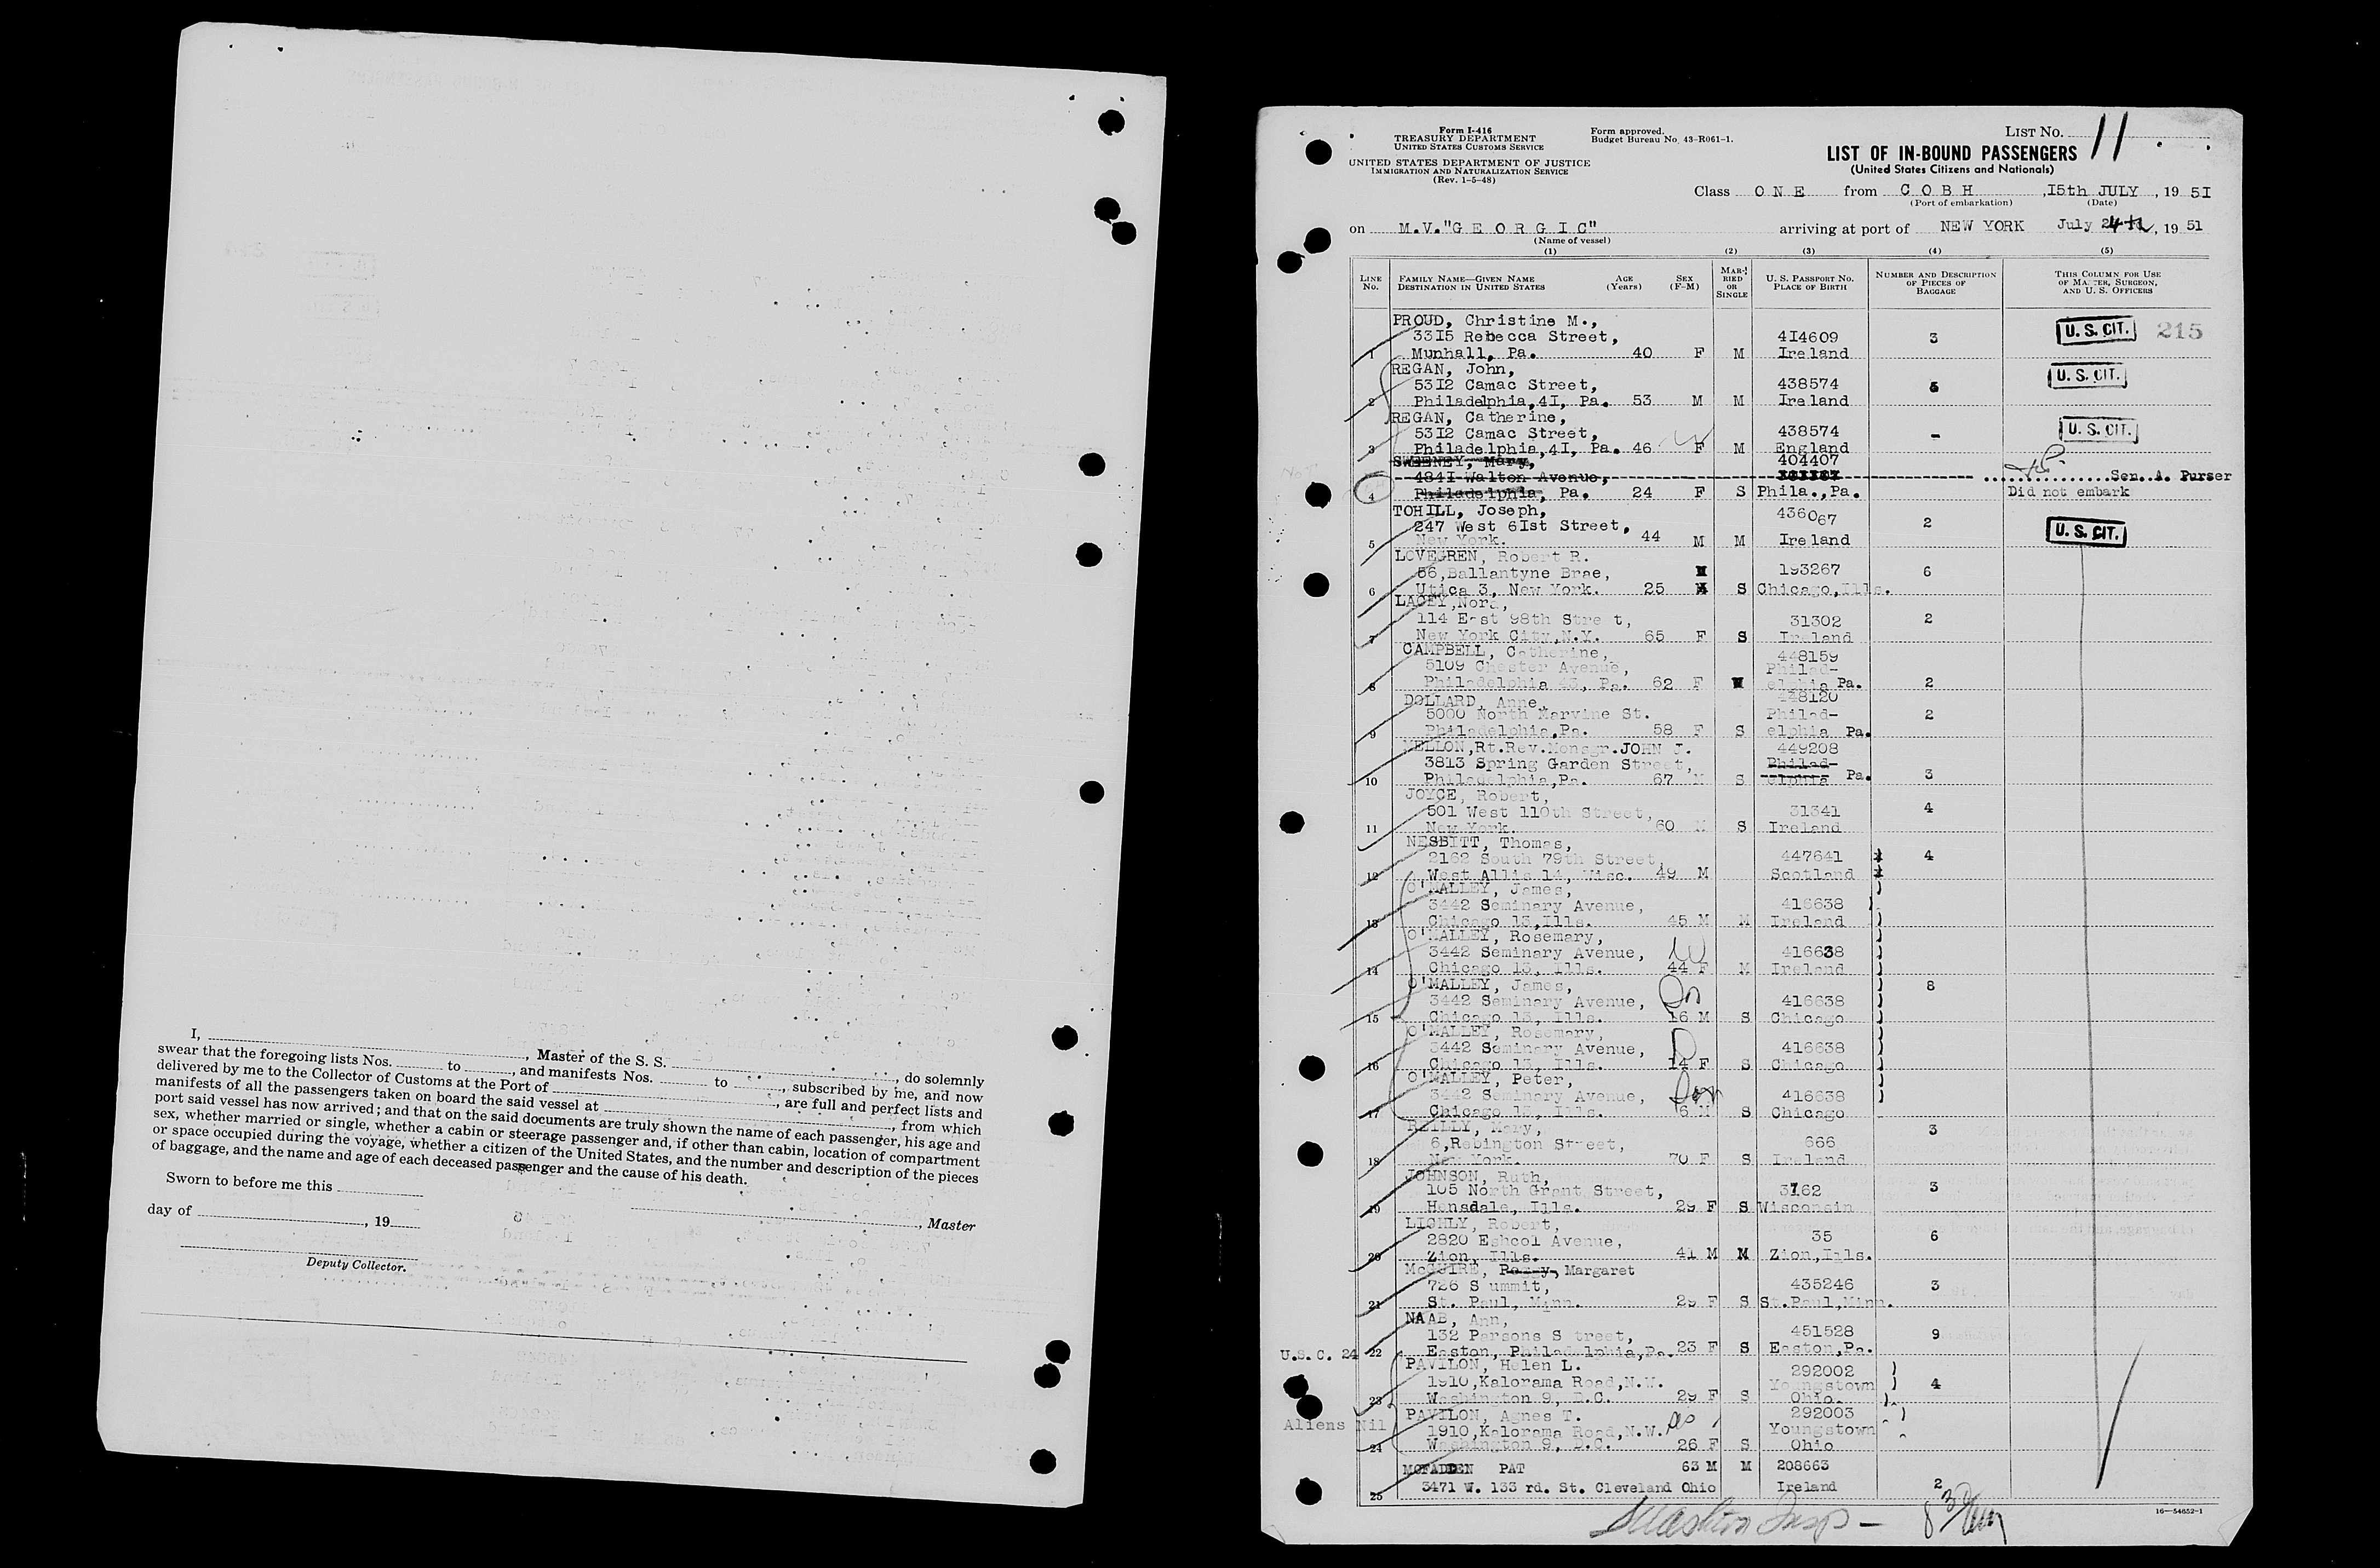 I, ........, Master of the S. S. ........, do solemnly
swear that the foregoing lists Nos. ........ to ........, and manifests Nos. ........ to ........, subscribed by me, and now
delivered by me to the Collector of Customs at the Port of ........, are full and perfect lists and
manifests of all the passengers taken on board the said vessel at ........, from which
port said vessel has now arrived; and that on the said documents are truly shown the name of each passenger, his age and
sex, whether married or single, whether a cabin or steerage passenger and, if other than cabin, location of compartment
or space occupied during the voyage, whether a citizen of the United States, and the number and description of the pieces
of baggage, and the name and age of each deceased passenger and the cause of his death.
Sworn to before me this ........
day of ........, 19.... ........, Master
Deputy Collector.
Form I-416
TREASURY DEPARTMENT
UNITED STATES CUSTOMS SERVICE
UNITED STATES DEPARTMENT OF JUSTICE
IMMIGRATION AND NATURALIZATION SERVICE
(Rev. 1-5-48)
Form approved.
Budget Bureau No. 43-R061-1.
LIST No. 11
LIST OF IN-BOUND PASSENGERS
(United States Citizens and Nationals)
Class O N E from C O B H , 15th JULY , 19 51
(Port of embarkation) (Date)
on M.V."G E O R G I C" arriving at port of NEW YORK July 24th, 19 51
(Name of vessel)
(1) (2) (3) (4) (5)
LINE No. FAMILY NAME—GIVEN NAME DESTINATION IN UNITED STATES AGE (Years) SEX (F-M) MARRIED OR SINGLE U. S. PASSPORT NO. PLACE OF BIRTH NUMBER AND DESCRIPTION OF PIECES OF BAGGAGE THIS COLUMN FOR USE OF MASTER, SURGEON, AND U. S. OFFICERS
PROUD, Christine M.,
3315 Rebecca Street, 414609 3 U. S. CIT. 215
1 Munhall, Pa. 40 F M Ireland
REGAN, John, U. S. CIT.
5312 Camac Street, 438574 5
2 Philadelphia,41, Pa. 53 M M Ireland
REGAN, Catherine,
5312 Camac Street, 438574 - U. S. CIT.
3 Philadelphia,41, Pa. 46 F M England
SWEENEY, Mary, 404407
4841 Walton Avenue, Sen. A. Purser
4 Philadelphia, Pa. 24 F S Phila.,Pa. Did not embark
TOHILL, Joseph, 436067
247 West 61st Street, 2 U. S. CIT.
5 New York. 44 M M Ireland
LOVEGREN, Robert R.
56,Ballantyne Brae, 193267 6
6 Utica 3, New York. 25 S Chicago,Ills.
LACEY,Nora,
114 East 98th Street, 31302 2
7 New York City,N.Y. 65 F S Ireland
CAMPBELL, Catherine, 448159
5109 Chester Avenue, Philad-
8 Philadelphia 43, Pa. 62 F W elphia Pa. 2
DOLLARD, Anne, 448120
5000 North Marvine St. Philad- 2
9 Philadelphia,Pa. 58 F S elphia Pa.
MELLON,Rt.Rev.Monsgr.JOHN J. 449208
3813 Spring Garden Street, Philad-
10 Philadelphia,Pa. 67 M S elphia Pa. 3
JOYCE, Robert,
501 West 110th Street, 31341 4
11 New York. 60 M S Ireland
NESBITT, Thomas,
2162 South 79th Street, 447641 4
12 West Allis 14, Wisc. 49 M Scotland
O'MALLEY, James,
3442 Seminary Avenue, 416638
13 Chicago 13,Ills. 45 M M Ireland
O'MALLEY, Rosemary,
3442 Seminary Avenue, 416638
14 Chicago 13, Ills. 44 F M Ireland
O'MALLEY, James, 8
3442 Seminary Avenue, 416638
15 Chicago 13, Ills. 16 M S Chicago
O'MALLEY, Rosemary,
3442 Seminary Avenue, 416638
16 Chicago 13, Ills. 14 F S Chicago
O'MALLEY, Peter,
3442 Seminary Avenue, 416638
17 Chicago 13, Ills. 6 M S Chicago
REILLY, Mary, 3
6,Rebington Street, 666
18 New York. 70 F S Ireland
JOHNSON, Ruth,
105 North Grant Street, 3762 3
19 Hensdale, Ills. 29 F S Wisconsin
LIGHLY, Robert,
2820 Eshcol Avenue, 35 6
20 Zion, Ills. 41 M M Zion,Ills.
McGUIRE, Peggy, Margaret
726 S ummit, 435246 3
21 St. Paul, Minn. 29 F S St.Paul,Minn.
NAAB, Ann,
132 Parsons S treet, 451528 9
U.S.C. 24 22 Easton, Philadelphia,Pa. 23 F S Easton,Pa.
PAVILON, Helen L. 292002
1910,Kalorama Road,N.W. Youngstown 4
23 Washington 9, D.C. 29 F S Ohio.
Aliens Nil PAVILON, Agnes T. 292003
1910,Kalorama Road,N.W. Youngstown
24 Washington 9, D.C. 26 F S Ohio
MCFADDEN PAT 63 M M 208663
25 3471 W. 133 rd. St. Cleveland Ohio Ireland 2
16—54652-1